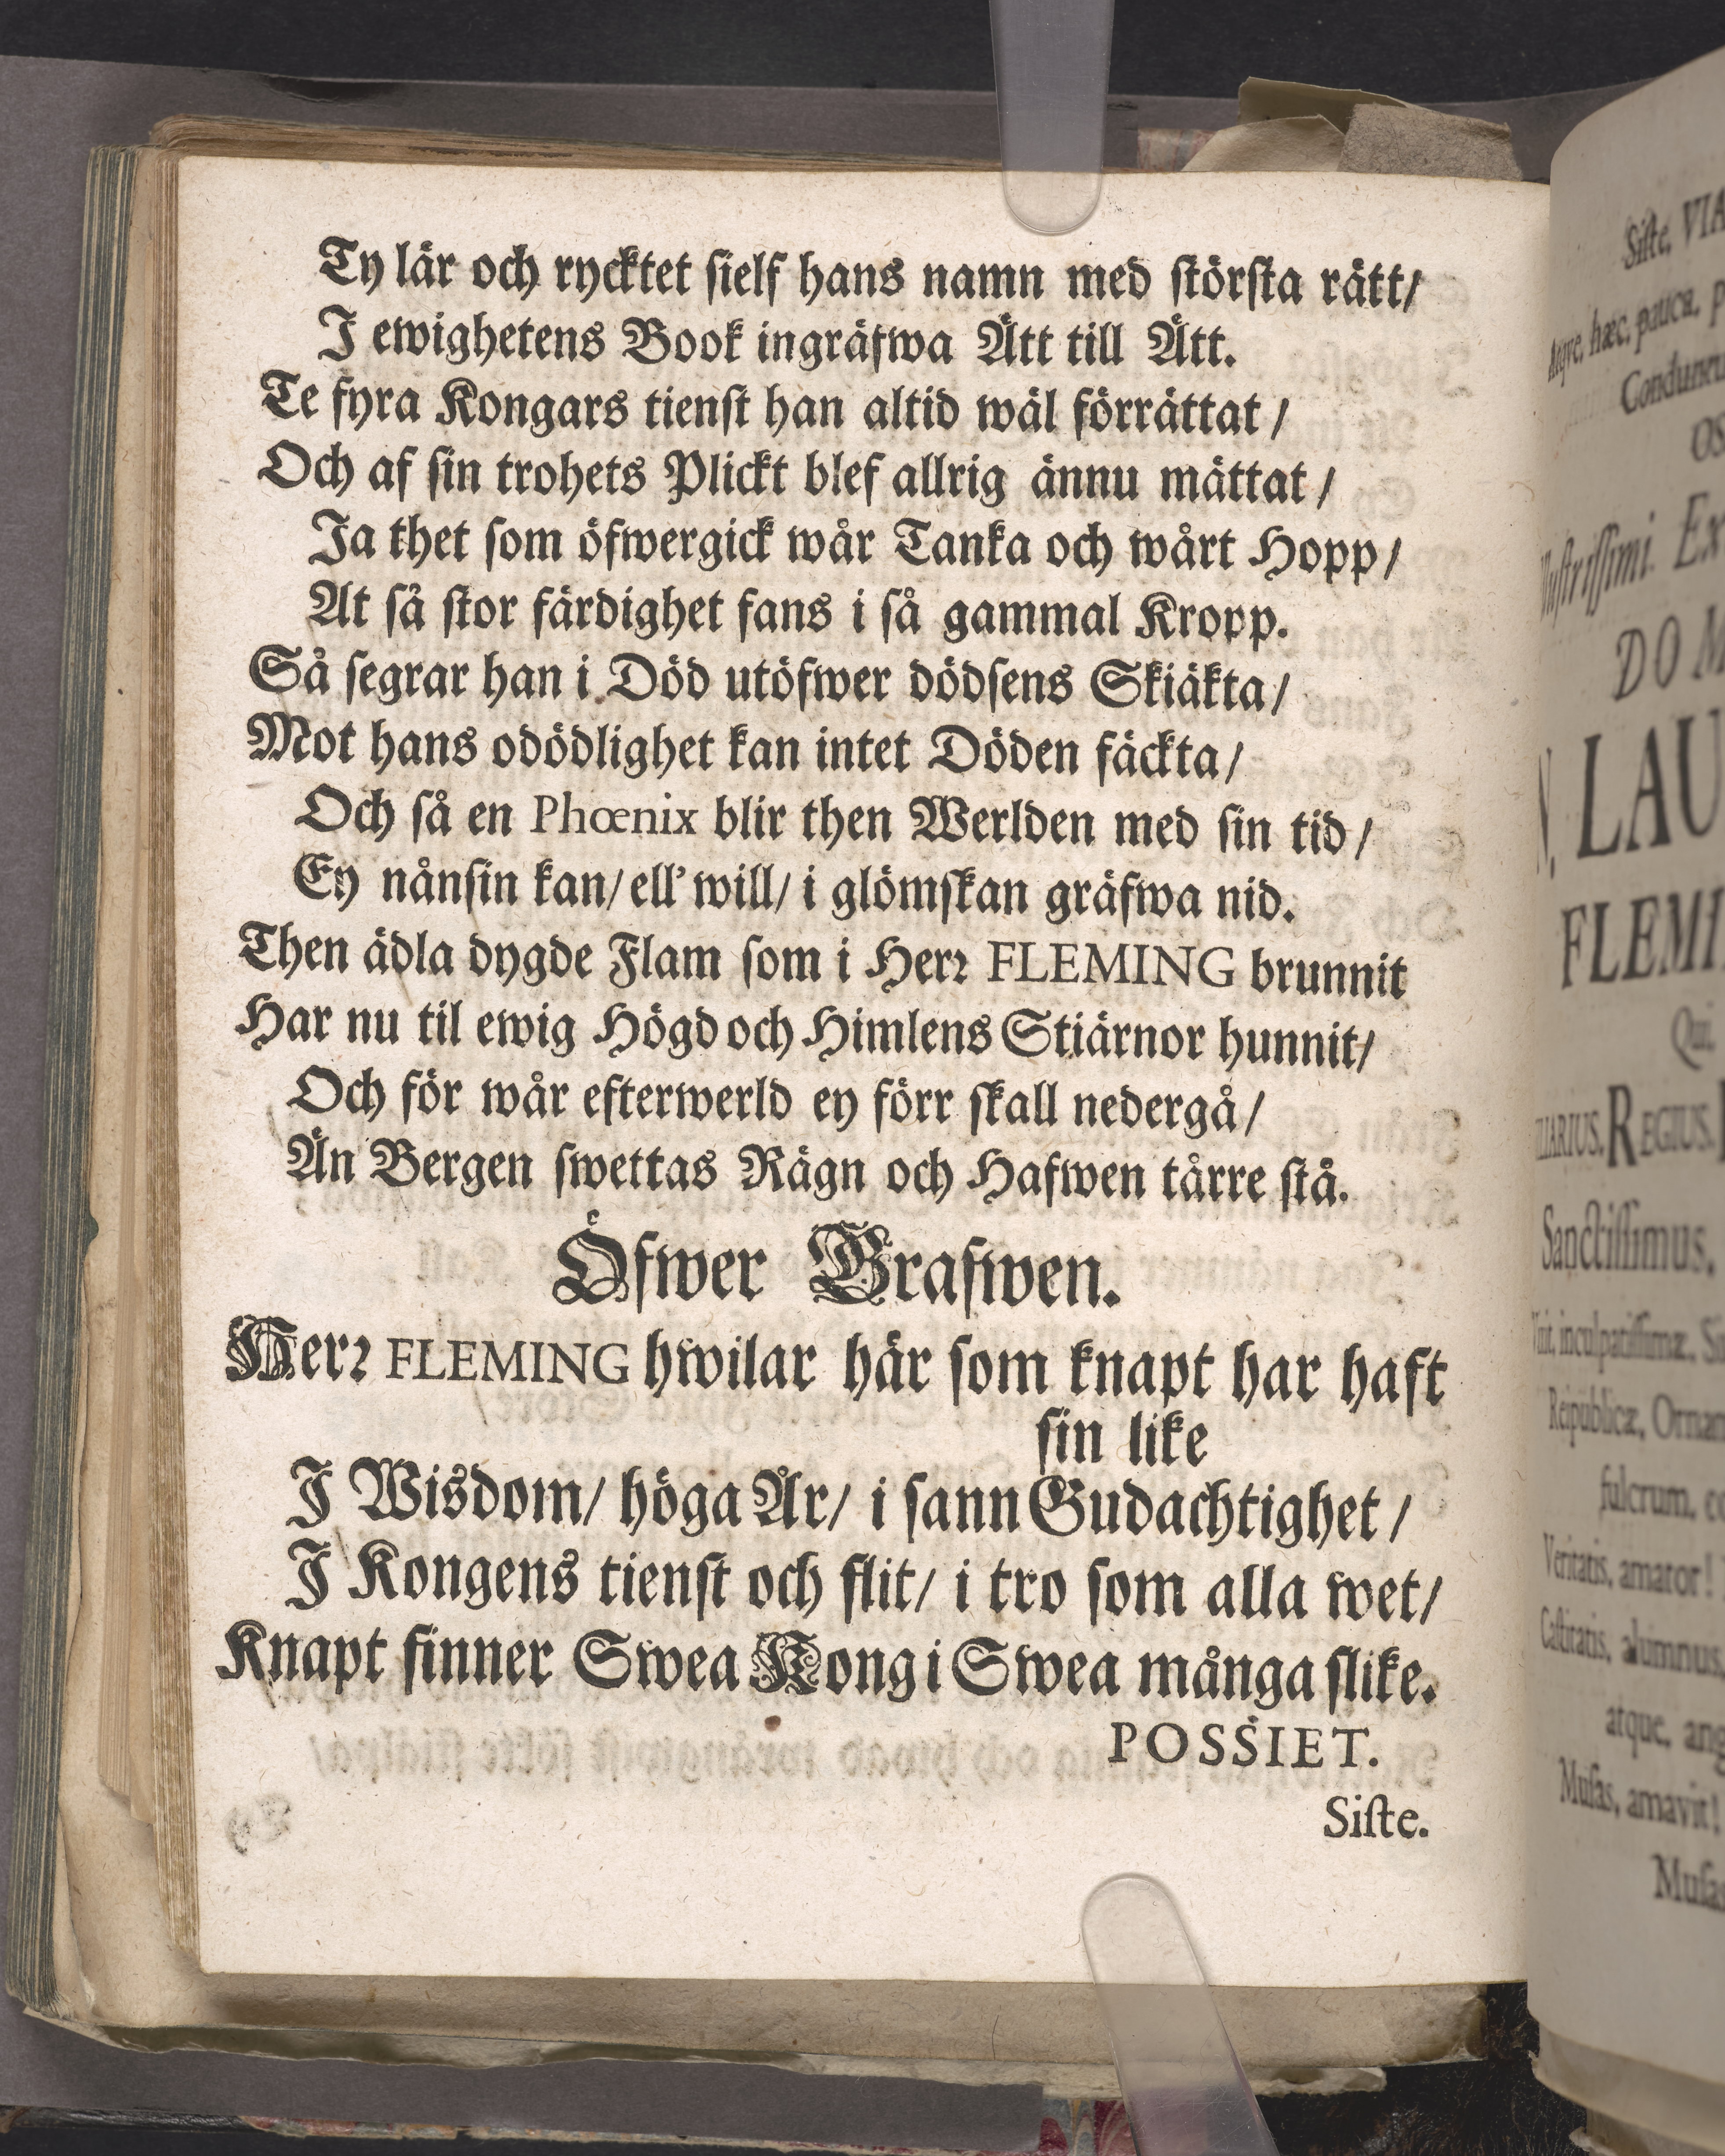 Ty lär och rycktet sielf hans namn med största rätt/
I ewighetens Book ingräfwa Ätt till Ätt.
Te fyra Kongars tienst han altid wäl förrättat /
Och af sin trohets Plickt blef allrig ännu mättat /
Ja thet som öfwergick wår Tanka och wårt Hopp/
At så stor färdighet fans i så gammal Kropp.
Så segrar han i Död utöfwer dödsens Skiäkta/
Mot hans odödlighet kan intet Döden fäckta/
Och så en Phœnix blir then Werlden med sin tid/
Ey nånsin kan/ ell' will/ i glömskan gräfwa nid.
Then ädla dygde Flam som i Herr FLEMING brunnit
Har nu til ewig Högd och Himlens Stiärnor hunnit/
Och för wår efterwerld ey förr skall nedergå/
Än Bergen swettas Rägn och Hafwen tårre stå.
Öfwer Grafwen.
Herr FLEMING hwilar här som knapt har haft
sin like
I Wisdom/ höga År/ i sann Gudachtighet /
I Kongens tienst och flit/ i tro som alla wet/
Knapt finner Swea Kong i Swea många slike.
POSSIET.
Siste.
Siste, VIA
hæc, pauca,
OS
DOM
LAU
FLEMI
Qui,
REGIUS.
Sanctissimus,
inculpatissimæ,
Reipublicæ, Ornam
fulcrum,
Veritatis, amator!
Castitatis, alumnus,
atque, ang
Musas, amavit!
Musas